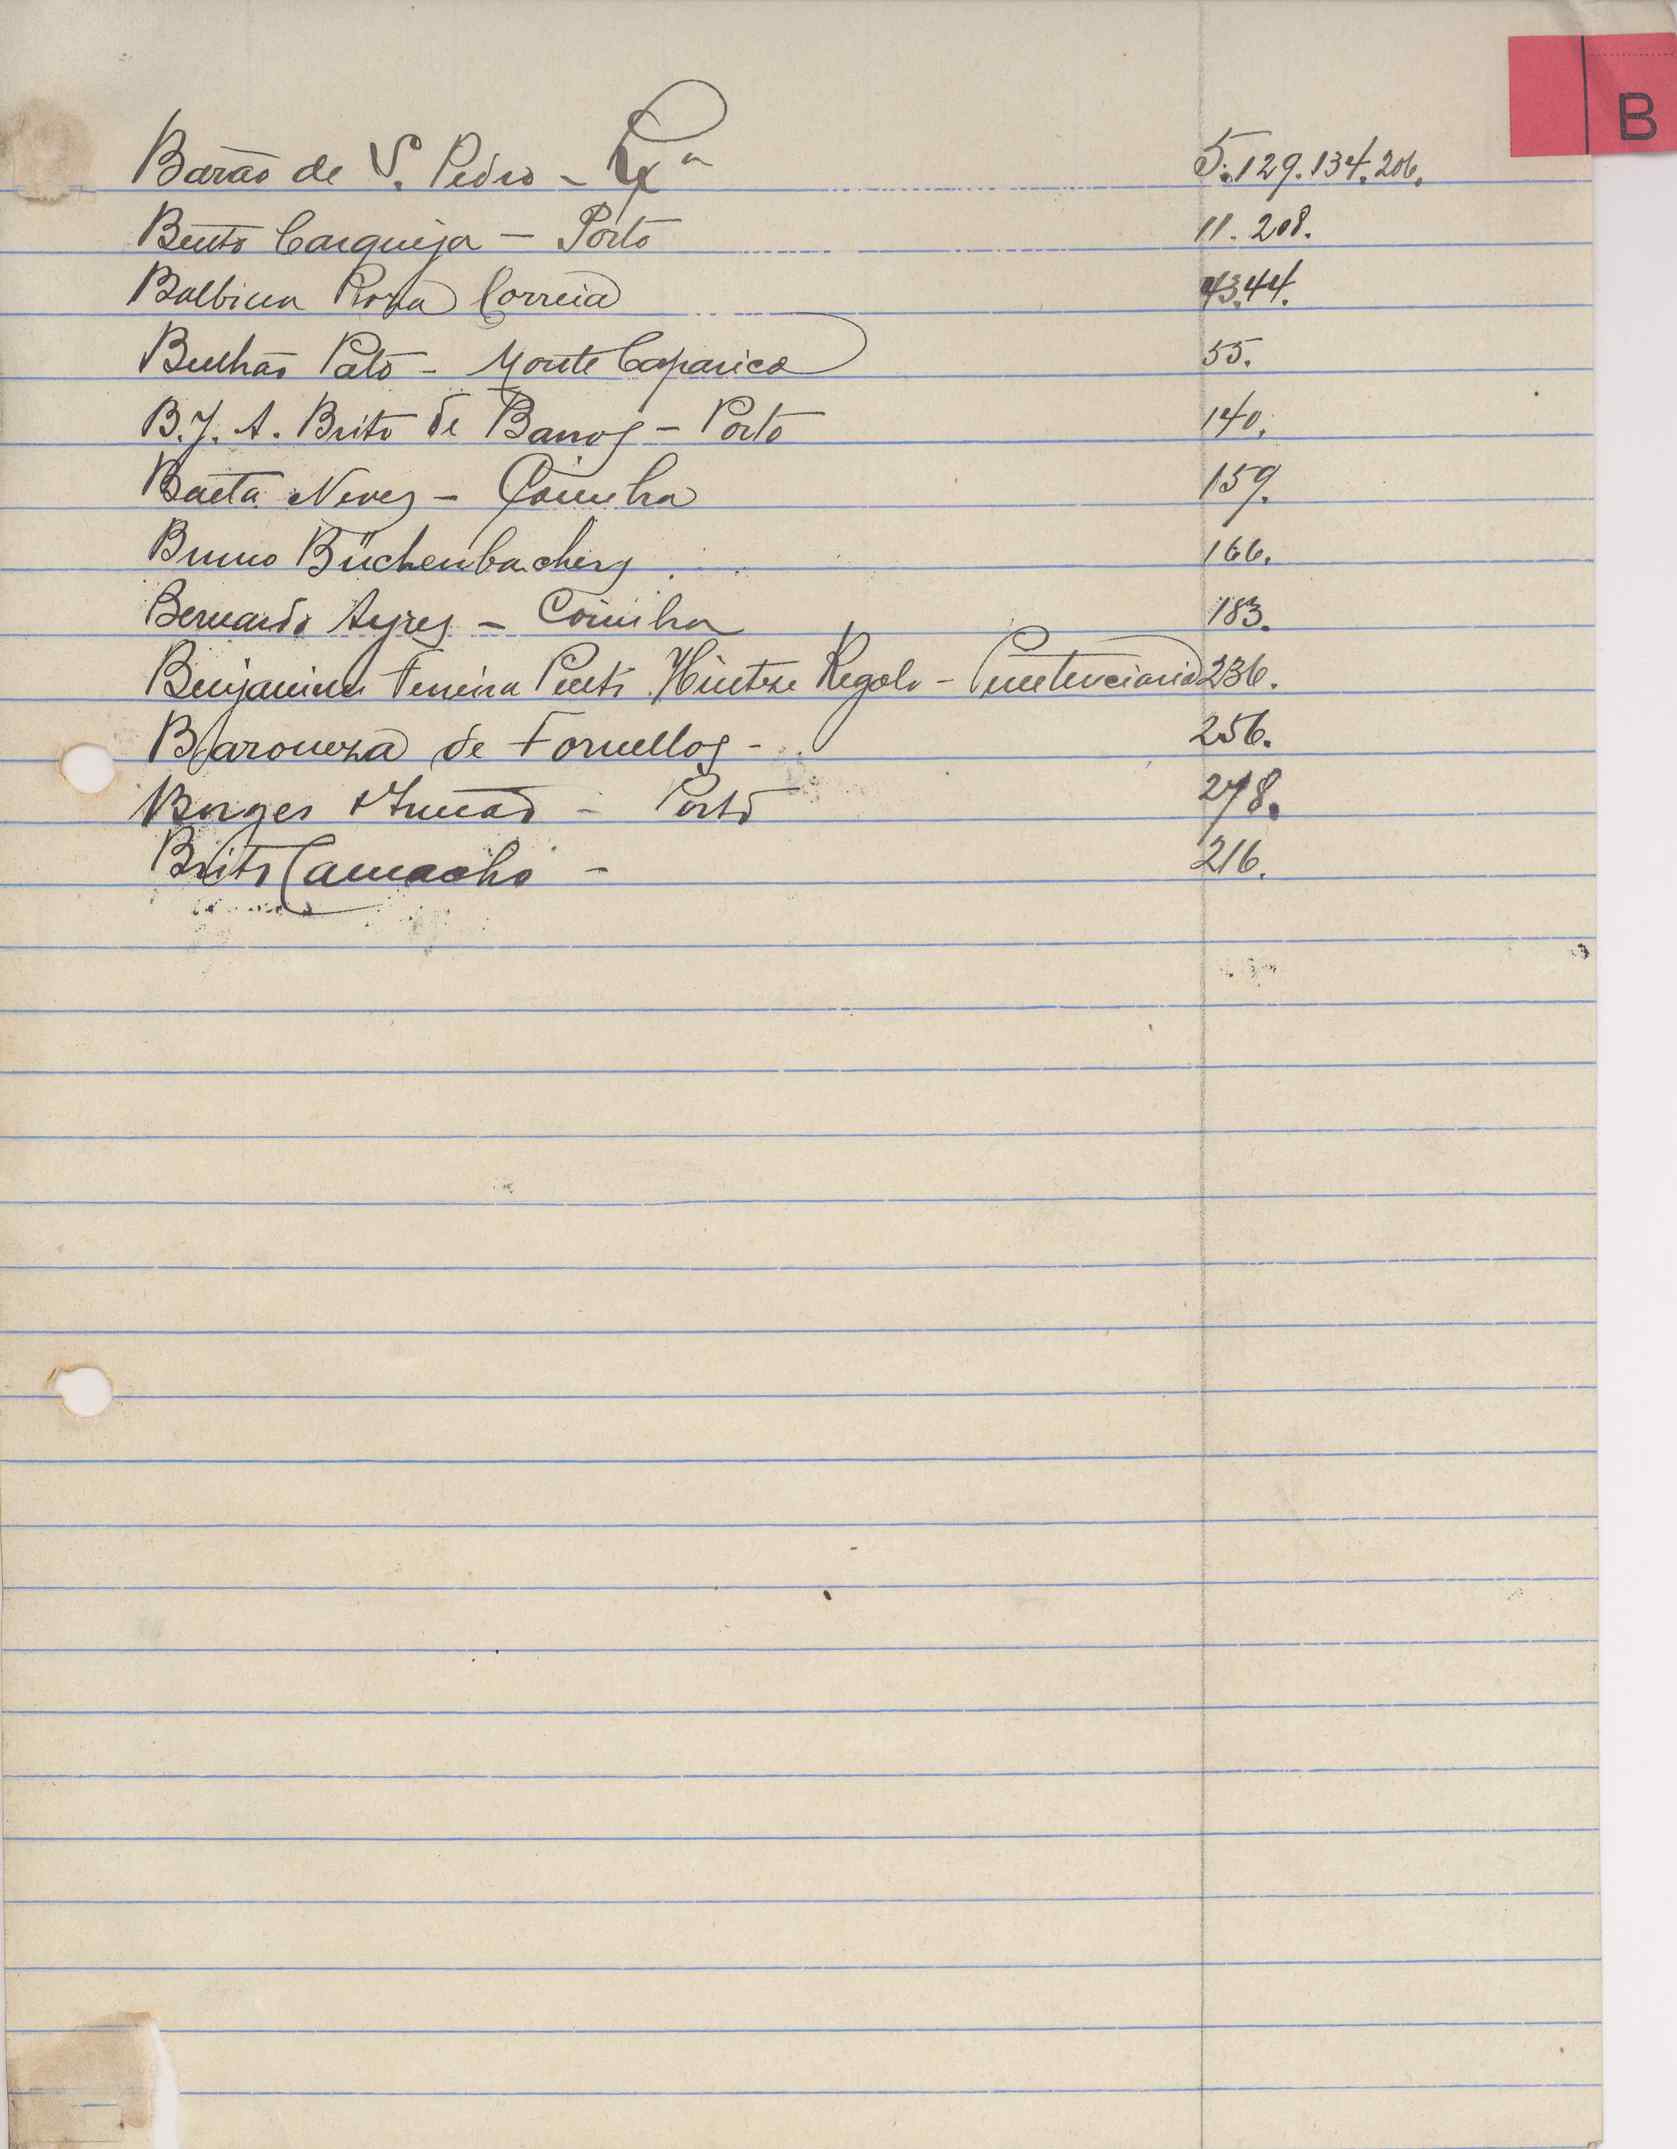 B
Barão de S. Pedro - Lxª 5. 129. 134. 206.
Bento Carqueja - Porto 11. 208.
Balbina Roza Correia 43. 44.
Bulhão Pato - Monte Caparica 55.
B. J. A. Brito de Barros - Porto 140.
Baeta Neves - Coimbra 159.
Bruno Büchenbachers 166.
Bernardo Ayres - Coimbra 183.
Ferreira Hintze - Penetenciaria 236.
Baroneza de Fornellos - 256.
Borges & Irmão - Porto 278.
Brito Camacho - 216.